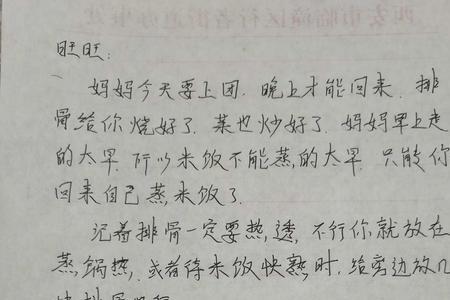 旺旺:
妈妈今天要上团. 晚上才能回来. 排
骨给你烧好了. 菜也炒好了. 妈妈早上走
的太早. 所以米饭不能蒸的太早. 只能你
回来自己蒸米饭了.
记着排骨一定要热,透, 不行你就放在
蒸,锅热, 或者待米饭快熟时, 给旁边放几
块排骨